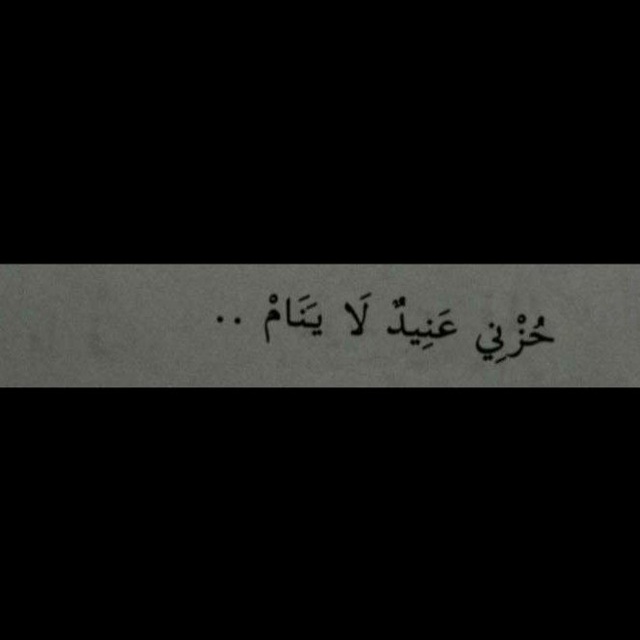 حُزْنِي عَنِيدٌ لَا يَنَامْ ..